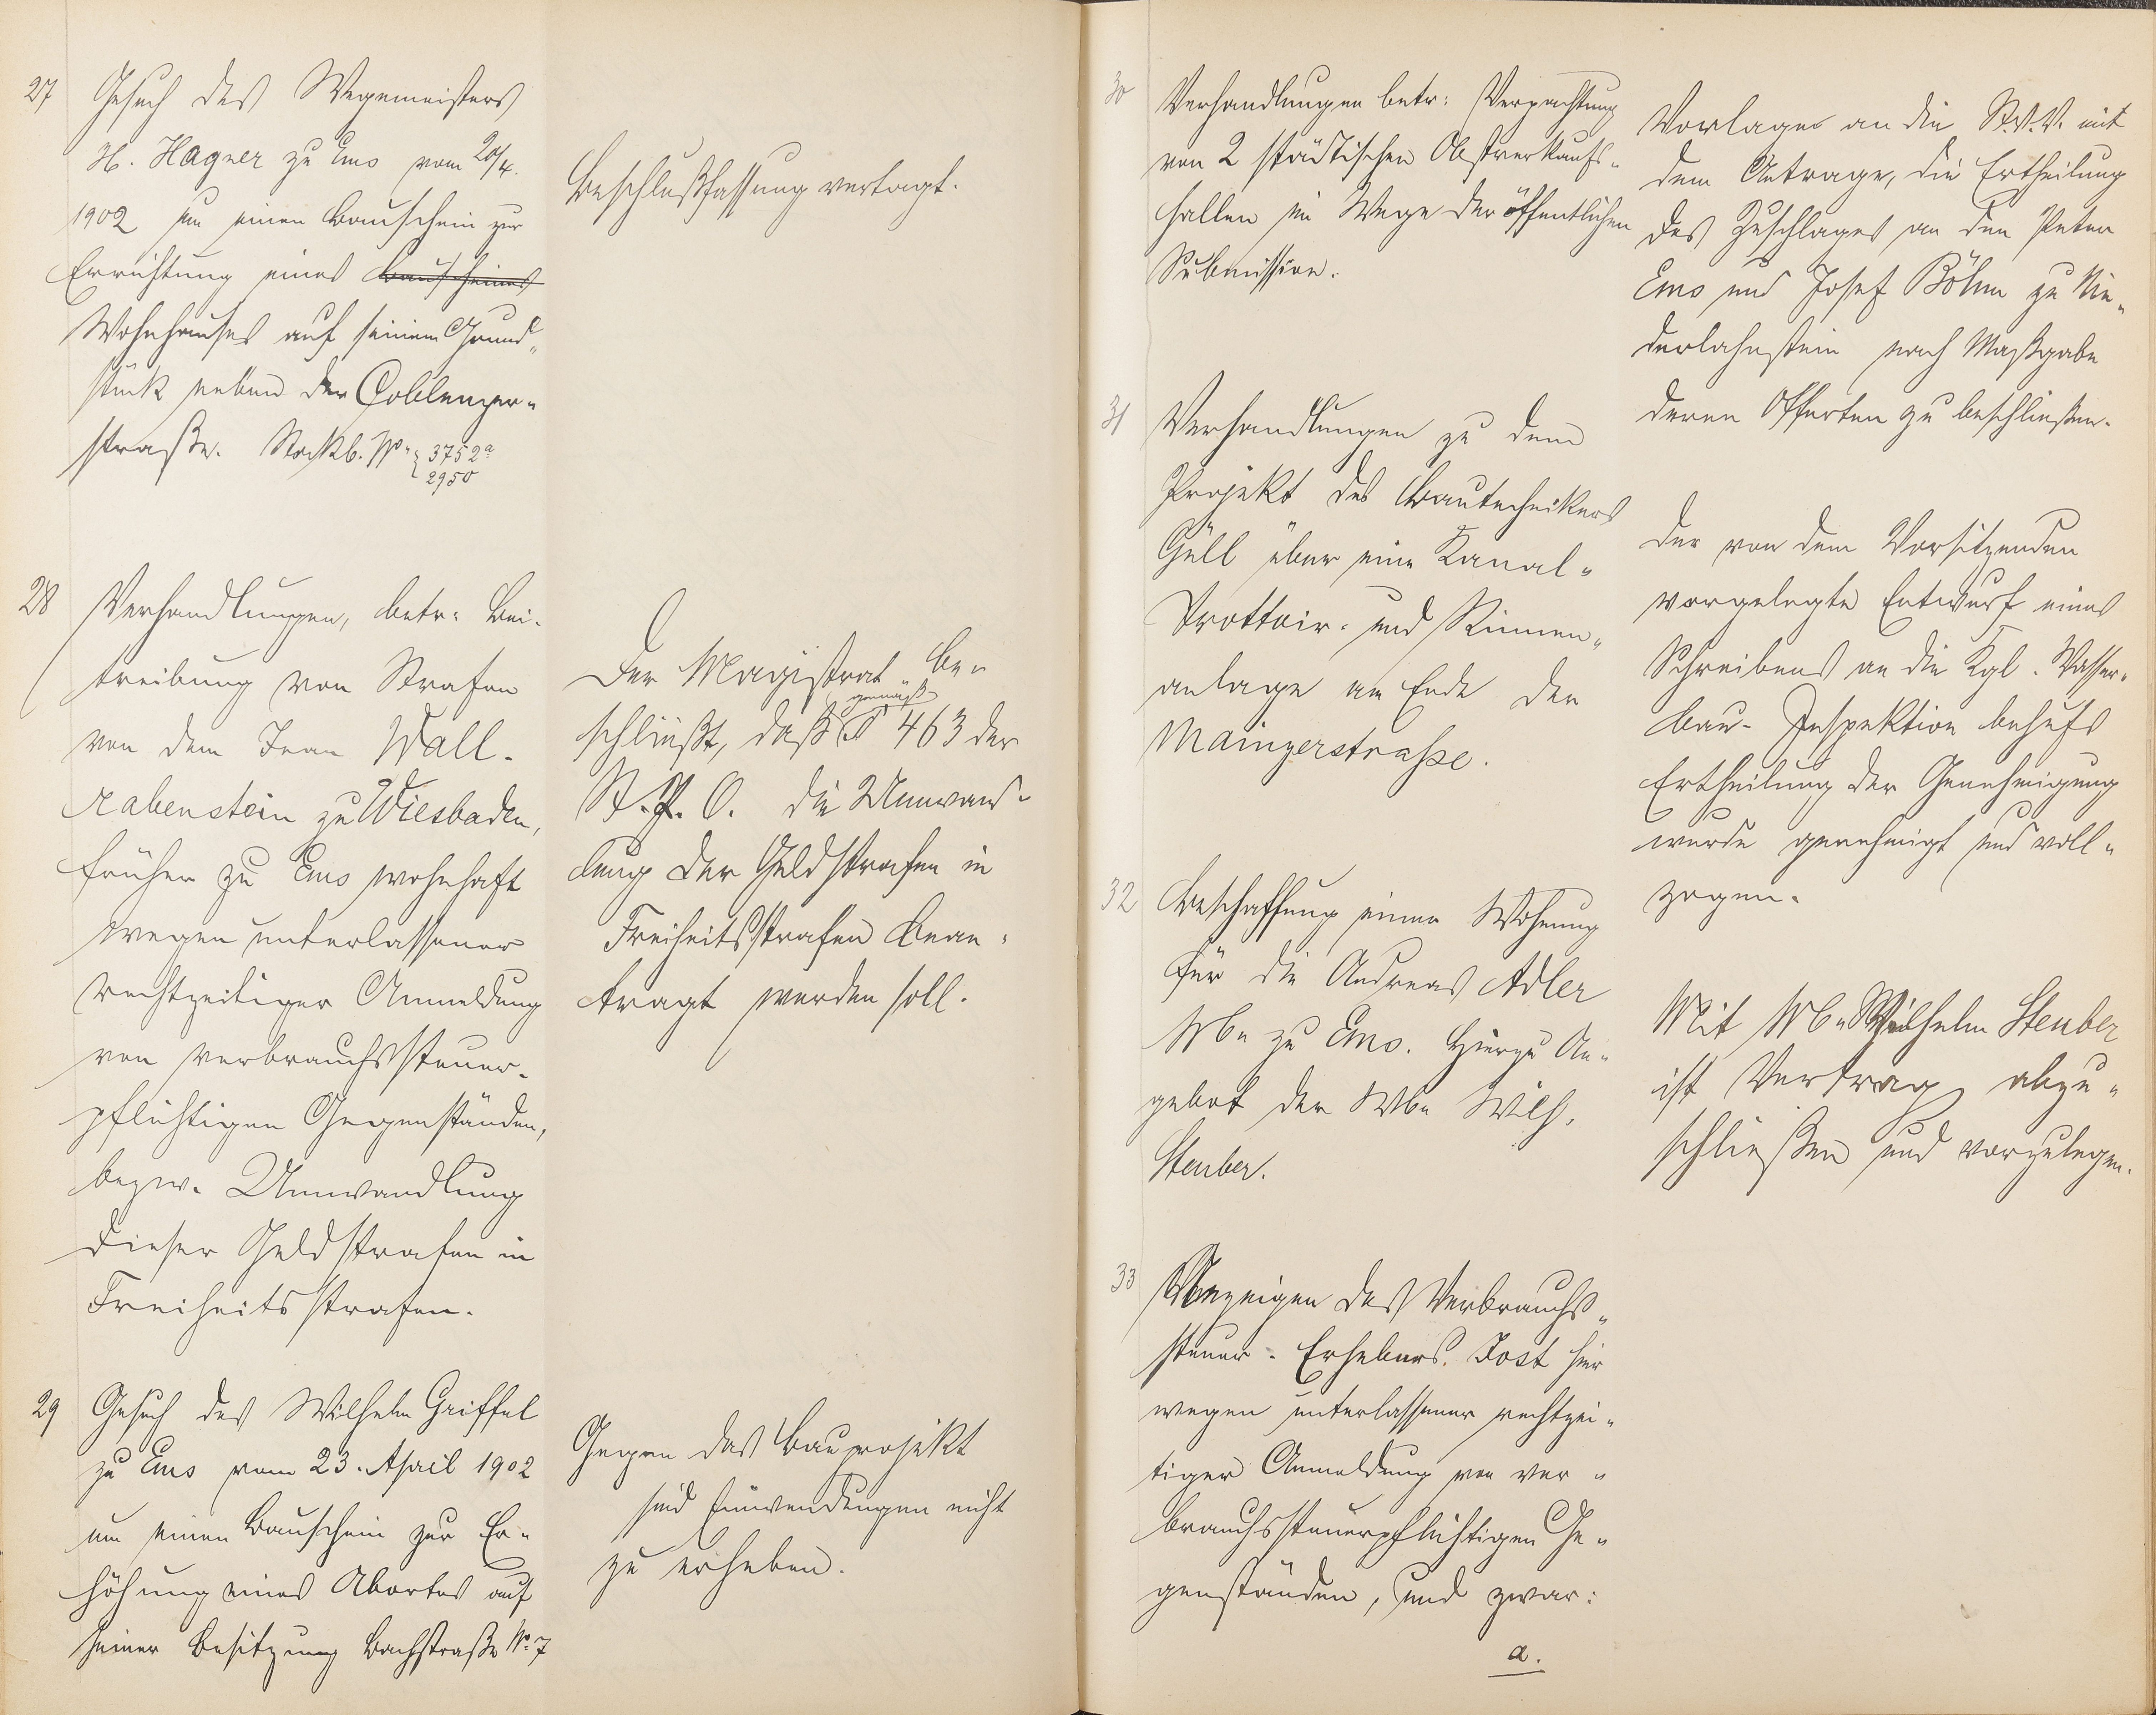 27
Gesuch des Wegemeisters
H. Hagner zu Ems vom 20/4.
1902 um einen Bauschein zur
Errichtung eines Bauscheines
Wohnhauses auf seinem Grund„
stück neben der Coblenzer„
straße. Stockb. No. 3752a
2950
Beschlußfassung vertagt.
28
Verhandlungen, betr. Bei-
treibung von Strafen
von dem Jean Wall-
rabenstein zu Wiesbaden,
früher zu Ems wohnhaft
wegen unterlassener
rechtzeitiger Anmeldung
von verbrauchssteuer-
pflichtigen Gegenständen,
bezw. Umwandlung
dieser Geldstrafen in
Freiheitsstrafen.
Der Magistrat be„
schließt, daß gemäß § 463 der
St. P. O. die Umwand-
lung der Geldstrafen in
Freiheitsstrafen bean-
tragt werden soll.
29
Gesuch des Wilhelm Griffel
zu Ems vom 23. April 1902
um einen Bauschein zur Er-
höhung eines Abortes auf
seiner Besitzung Bachstraße No. 7
Gegen das Bauprojekt
sind Einwendungen nicht
zu erheben.
30
Verhandlungen betr: Verpachtung
von 2 städtischen Obstverkaufs„
hallen im Wege der öffentlichen
Submission.
Vorlage an die St.V.V. mit
dem Antrage, die Ertheilung
des Zuschlages an den Peter
Ems und Josef Böhm zu Nie„
derlahnstein nach Maßgabe
deren Offerten zu beschließen.
31
Verhandlungen zu dem
Projekt des Bautechnikers
Güll über eine Kanal„
Trottoir- und Rinnen„
anlage am Ende der
Mainzerstraße.
Der von dem Vorsitzenden
vorgelegte Entwurf eines
Schreibens an die Kgl. Wasser„
bau- Inspektion behufs
Ertheilung der Genehmigung
wurde genehmigt und voll„
zogen.
32
Beschaffung einer Wohnung
für die Andreas Adler
Wwe zu Ems. Hierzu An„
gebot der Wwe Wilh.
Steuber.
Mit Wwe Wilhelm Steuber
ist Vertrag abzu„
schließen und vorzulegen.
33
Anzeigen des Verbrauchs„
steuer- Erhebers Jost hier
wegen unterlassener rechtzei„
tiger Anmeldung von ver„
brauchssteuerpflichtigen Ge„
genständen, und zwar:
a.